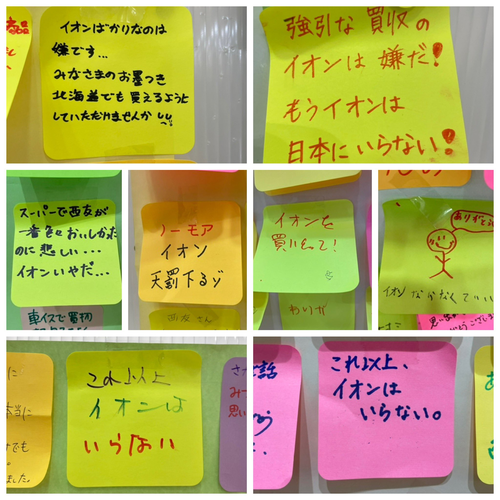 イオンばかりなのは
嫌です…
みなさまのお墨つき
北海道でも買えるように
していただけませんか
強引な買収の
イオンは嫌だ!
もうイオンは
日本にいらない!
スーパーで西友が
一番色々おいしかった
のに悲しい…
イオンいやだ…
車イスで買物
ノーモア
イオン
天罰下るゾ
西友さん
イオンを
買いとって!
ありがとう
イオン なんかなくていい
これ以上
イオンは
いらない
これ以上、
イオンは
いらない。